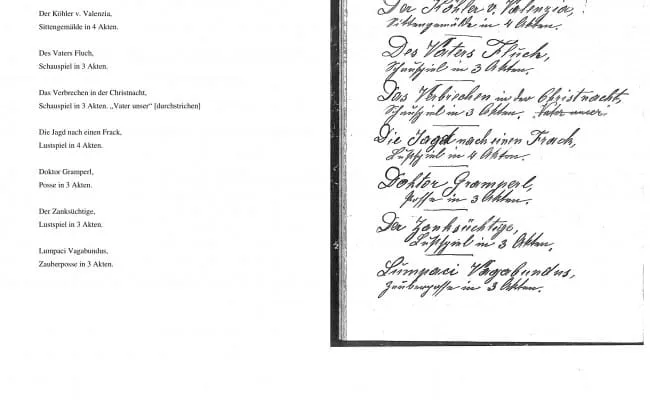 Der Köhler v. Valenzia,
Sittengemälde in 4 Akten.
Des Vaters Fluch,
Schauspiel in 3 Akten.
Das Verbrechen in der Christnacht,
Schauspiel in 3 Akten. „Vater unser” [durchstrichen]
Die Jagd nach einen Frack,
Lustspiel in 4 Akten.
Doktor Gramperl,
Posse in 3 Akten.
Der Zanksüchtige,
Lustspiel in 3 Akten.
Lumpaci Vagabundus,
Zauberposse in 3 Akten.
Der Köhler v. Valenzia,
Sittengemälde in 4 Akten.
Des Vaters Fluch,
Schauspiel in 3 Akten.
Das Verbrechen in der Christnacht,
Schauspiel in 3 Akten. Vater unser
Die Jagd nach einen Frack,
Lustspiel in 4 Akten.
Doktor Gramperl,
Posse in 3 Akten.
Der Zanksüchtige,
Lustspiel in 3 Akten.
Lumpaci Vagabundus,
Zauberposse in 3 Akten.